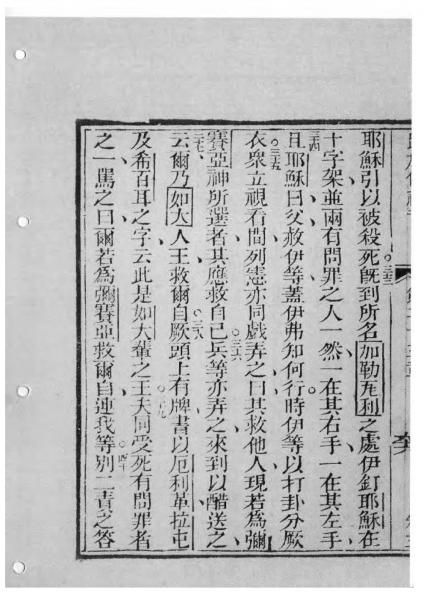 耶穌引以被殺死○三三旣到所名加勒瓦利之處伊釘耶穌在
十字架並兩有問罪之人一然一在其右手一在其左手
三四且耶穌曰父赦伊等蓋伊弗知何行時伊等以打卦分厥
衣○三五衆立視看間列憲亦同戲弄之曰其救他人現若為彌
賽亞神所選者其應救自己○三六兵等亦弄之來到以醋送之
三七云爾乃如大人王救爾自○三八厥頭上有牌書以厄利革拉屯
及希百耳之字云此是如大輩之王○三九夫同受死有問罪者
之一罵之曰爾若為彌賽亞救爾自連我等○四十別二責之答